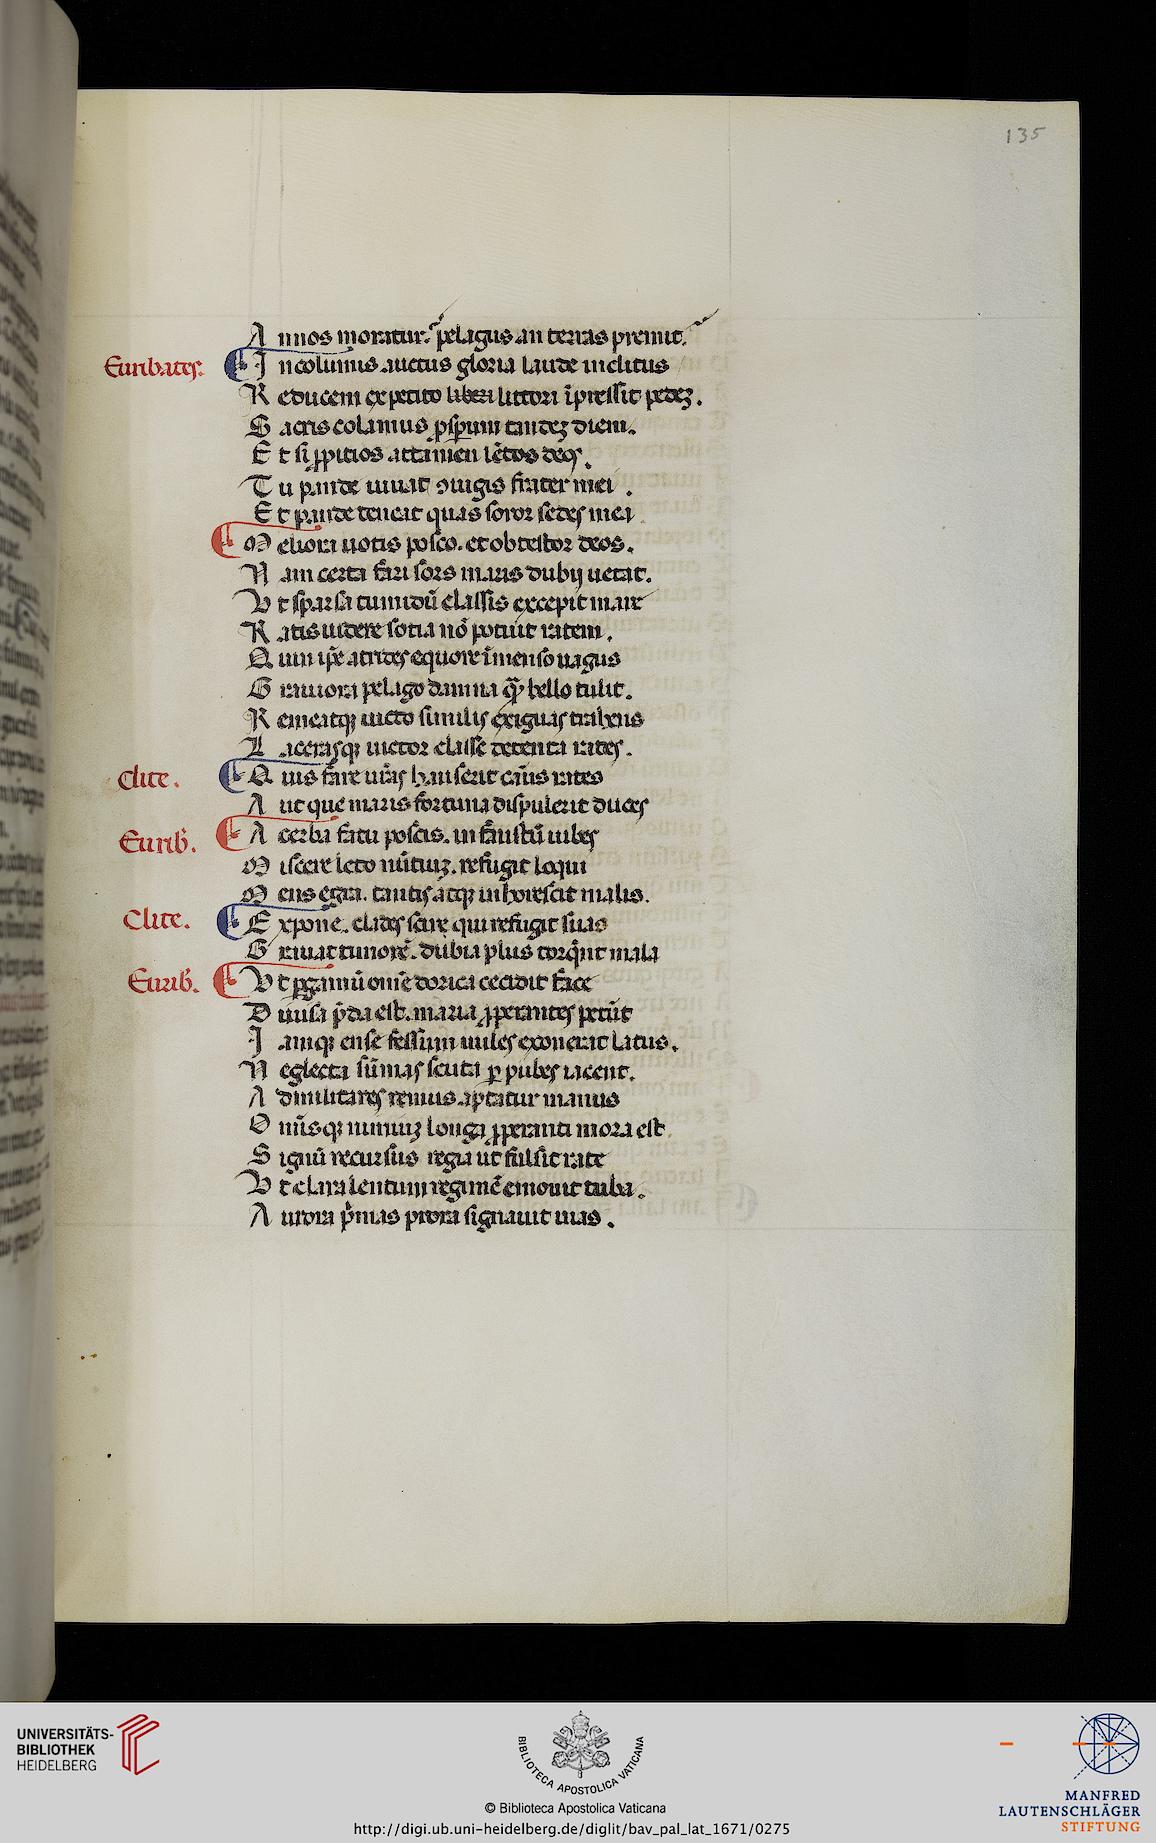 135
A nnos moratur. pelagus an terras premit.
Euribates. I ncolumis auctus gloria laude inclitus
R educem expetito liberi littori īpressit pedeʒ.
S acris colamus ꝓsꝑum tandeʒ diem.
E t si ꝓpitios attamen lētos deos.
T u pande uiuat ↄiugis frater mei.
E t pande teneat quas soror sedes mei
M eliora uotis posco. et obtestor deos.
N am certa fari sors maris dubij uetat.
V t sparsa tumidū classis excepit mare
R atis uidere sotia nō potuit ratem.
Q uin ip̄e atrides equore īmenso uagus
G rauiora pelago damna qꝫ bello tulit.
R emeatqꝫ uicto similis exiguas trahens
L acerasqꝫ uictor classe detenta rates.
Clite. Q uis fare ur̄as hauserit casus rates
A ut que maris fortuna dispulerit duces
Eurib̄. A cerba fatu poscis. infaustū iubes
M iscere leto nūtiuʒ. refugit loqui
M ens egra. tantis atqꝫ inhorescit malis.
Clite. E xpone. clades scire qui refugit suas
G rauat timorē. dubia plus torquēt mala
Eurib̄. V t ꝑgamū omē dorica cecidit face
D iuisa p̄da est. maria ꝓperantes petūt
I amqꝫ ense fessum miles exonerat latus.
N eglecta sūmas scuta ꝑ pubes iacent.
A d militares remus aptatur manus
O mīsqꝫ nimiuʒ longa ꝓperanti mora est.
S ignū recursus regia ut fulsit rate
V t clara lentum regimē emouit tuba.
A urora p̄mas prora signauit uias.
UNIVERSITÄTS-
BIBLIOTHEK
HEIDELBERG
BIBLIOTECA APOSTOLICA VATICANA
© Biblioteca Apostolica Vaticana
http://digi.ub.uni-heidelberg.de/diglit/bav_pal_lat_1671/0275
MANFRED
LAUTENSCHLÄGER
STIFTUNG